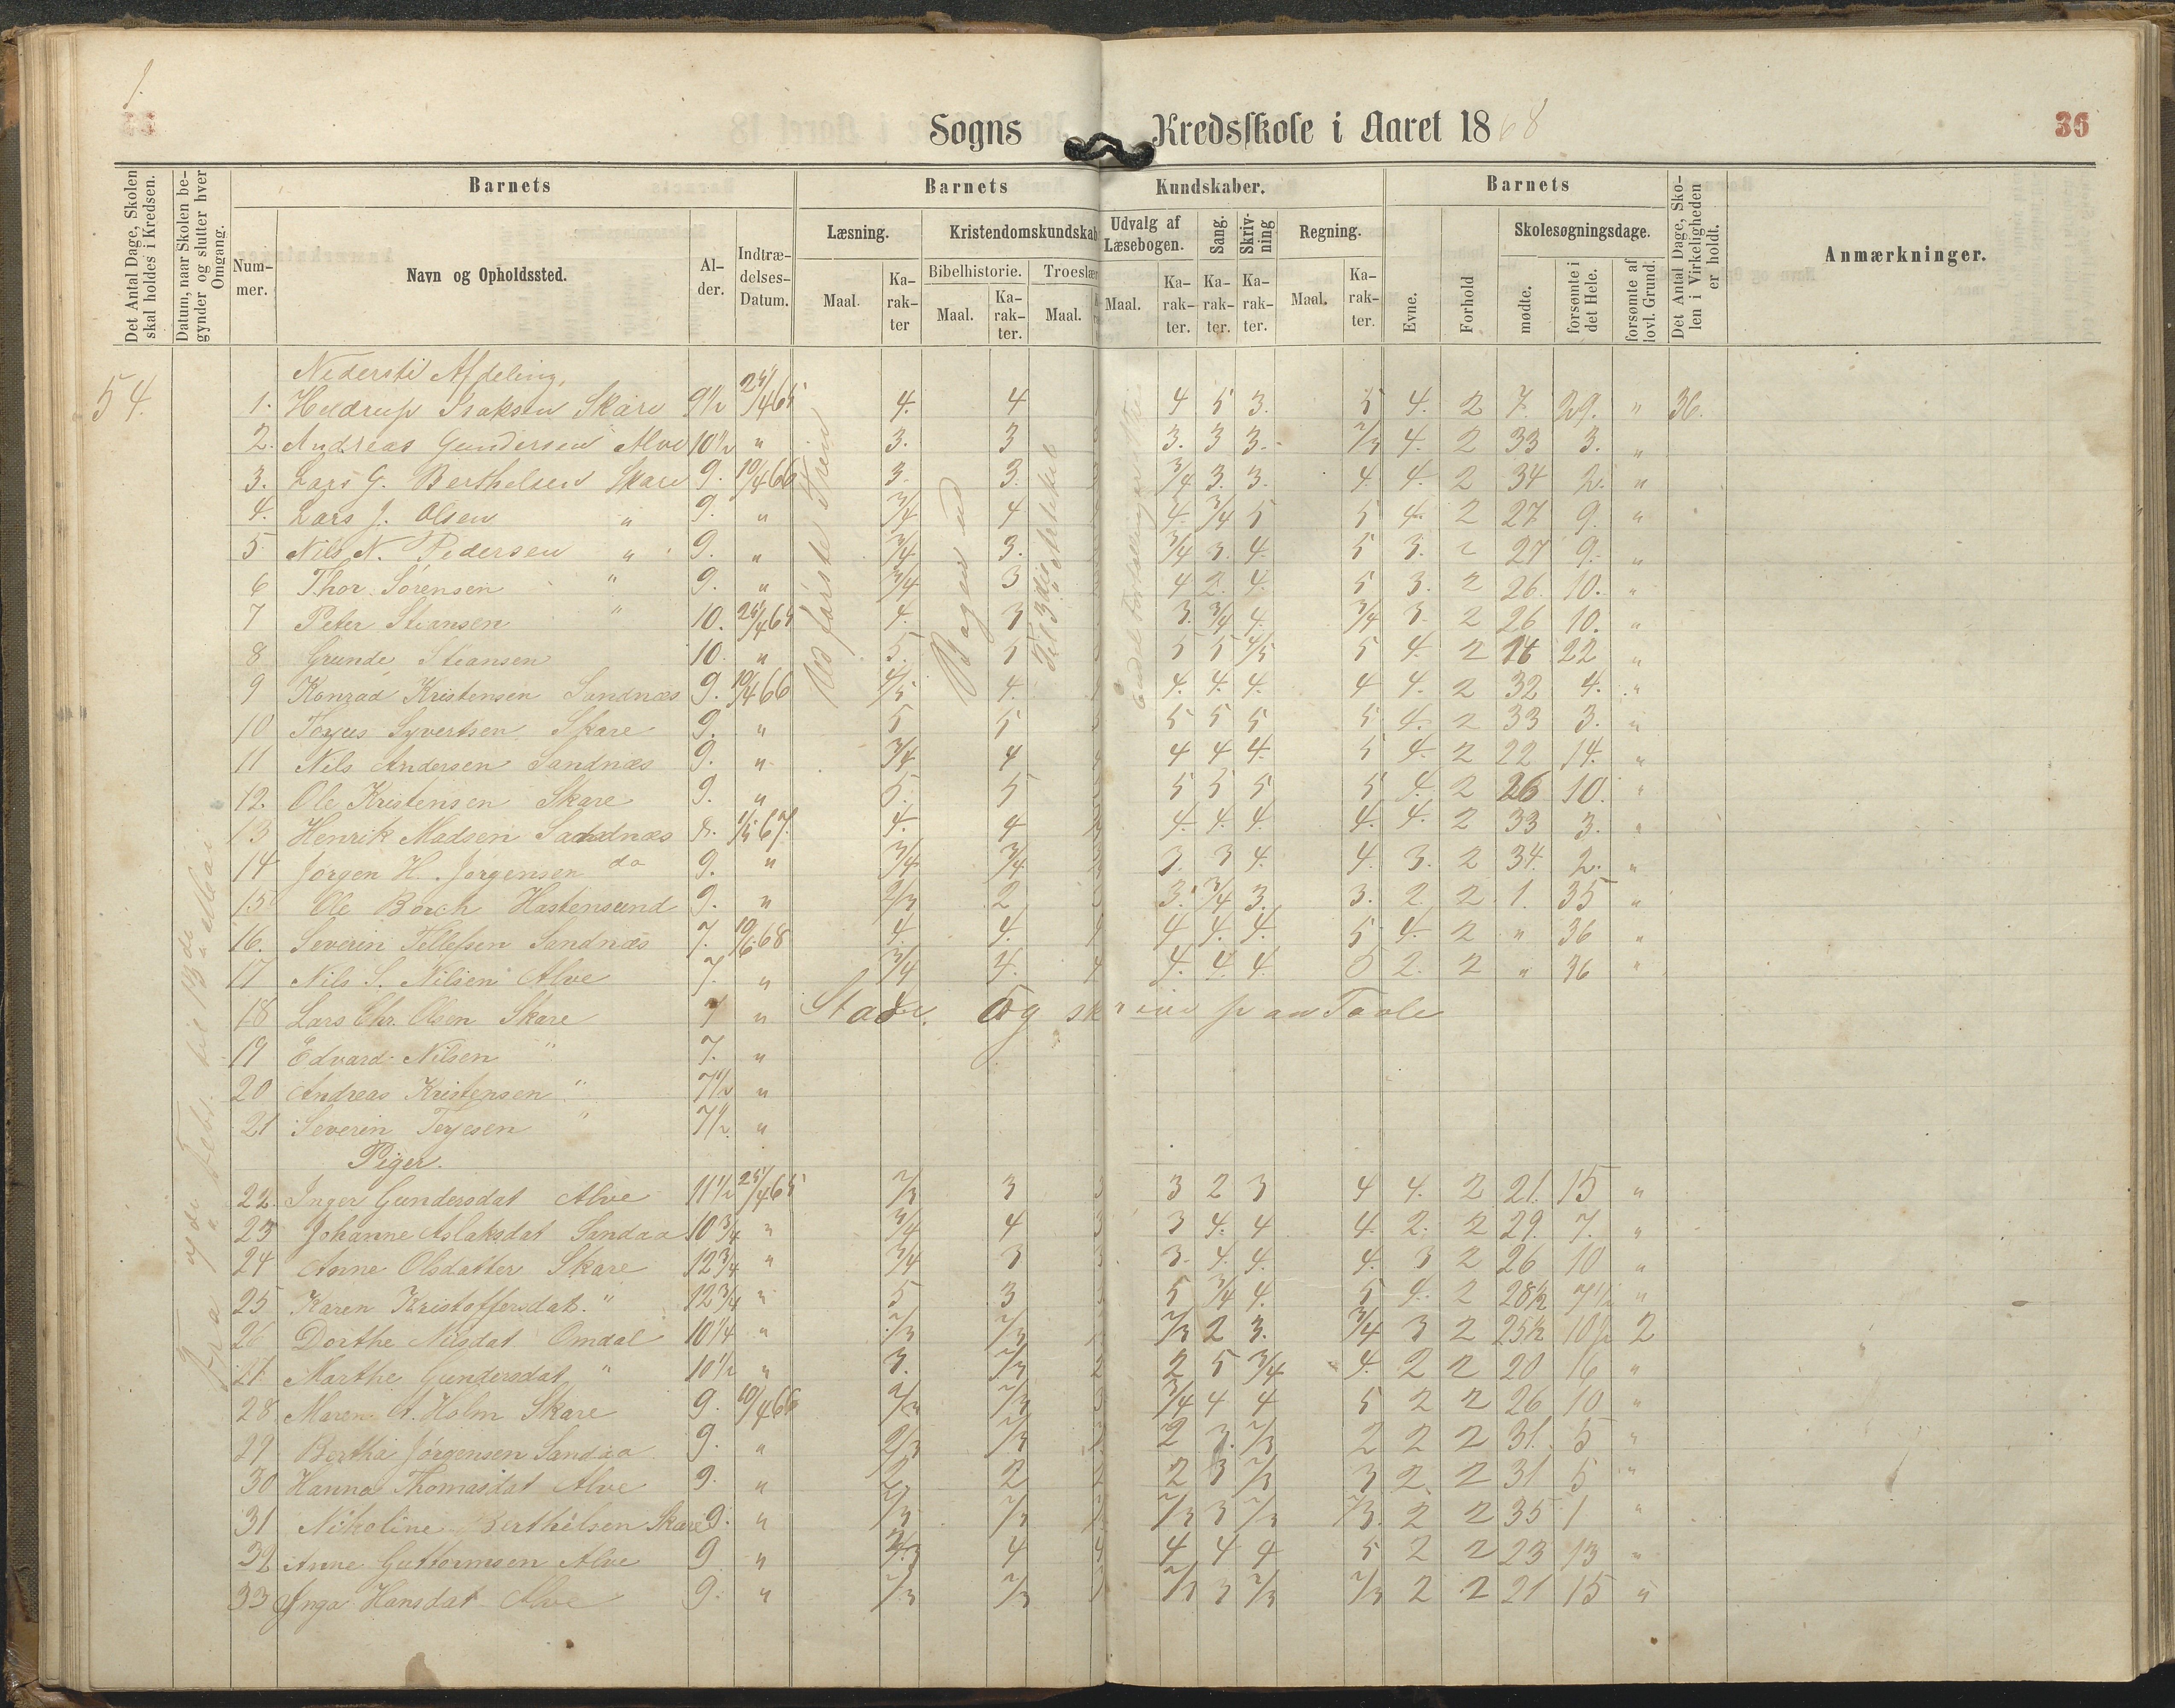 1.
Sogns Kredsskole i Aaret 1868
36
Det Antal Dage, Skolen skal holdes i Kredsen.
Datum, naar Skolen begynder og slutter hver Omgang.
Barnets
Barnets Kundskaber.
Barnets
Det Antal Dage, Skolen i Virkeligheden er holdt.
Anmærkninger.
Nummer.
Navn og Opholdssted.
Alder.
Indtrædelses-Datum.
Læsning.
Kristendomskundskab
Udvalg af Læsebogen.
Sang.
Skrivning
Regning.
Evne.
Forhold
Skolesøgningsdage.
Bibelhistorie.
Troeslær
Maal.
Karakter
Maal.
Karakter.
Maal.
Maal.
Karakter.
Karakter.
Karakter.
Maal.
Karakter.
mødte.
forsømte i det Hele.
forsømte af lovl. Grund.
54.
Nederste Afdeling.
1. Heldrup Isaksen Skare 9½ 25/4 65 4. 4 4 5 3. 5 4. 2 7. 29. " 36.
2. Andreas Gundersen Alve 10½ " 3. 3 3. 3 3. 2/3 4. 2 33 3. "
3. Lars G. Berthelsen Skare 9. 10/4 66 3. 3. 3/4 3. 3. 4. 4. 2 34 2. "
4. Lars J. Olsen " 9. " 3/4 4 4. 3/4 5 5 4. 2 27 9. "
5 Nils N. Pedersen " 9. " 3/4 3. 3/4 3. 4. 5 3. 2 27 9. "
6 Thor Sørensen " 9. " 3/4 3 4 2. 4. 5 3. 2 26. 10. "
7 Peter Stiansen " 10. 25/4 65 4. 3 3. 3/4 4. 3/4 3 2 26 10. "
8 Grunde Stiansen 10. " 5. 5 5 5 4/5 5 4. 2 14 22 "
9 Konrad Kristensen Sandnæs 9. 10/4 66 4/5 4. 4. 4. 4. 4 4. 2 32 4. "
10 Terjus Syvertsen Skare 9. " 5 5 5 5 5 5 4. 2 33 3. "
11 Nils Andersen Sandnæs 9. " 3/4 4 4 4 4. 5 4. 2 22 14. "
12. Ole Kristensen Skare 9. " 5. 5 5 5 5 5 4. 2 26 10. "
13 Henrik Madsen Sandnæs 8. 1/5 67. 4. 4 4. 4. 4. 4. 4. 2 33 3. "
14 Jørgen H. Jørgensen do 9. " 3/4 3/4 3. 3 4. 4. 3. 2 34. 2. "
15 Ole Borch Hastensund 9. " 2/3 2 3. 3/4 3. 3. 2. 2. 1. 35 "
16. Severin Tellefsen Sandnæs 7. 10/6 68 4. 4. 4 4 4. 4. 5 4. 2 " 36 "
17 Nils S. Nilsen Alve 7. " 3/4 4. 4 4. 4. 4. 5 2. 2 " 36 "
18 Lars Chr. Olsen Skare 7 " Stave. Og skrive paa Tavle
19 Edvard Nilsen " 7. "
20 Andreas Kristensen " 7½ "
21 Severin Terjesen " 7½ "
Piger.
22. Inger Gundersdat Alve 11½ 25/4 65 2/3 3 3 3 2 3 4 4. 2 21. 15 "
23 Johanne Aslaksdat Sandaa 10¾ " 3/4 4 3 3 4. 4 4. 2. 2 29. 7. "
24 Anne Olsdatter Skare 12¾ " 3/4 3 3 3. 4. 4. 4. 3 2 26 10 "
25 Karen Kristoffersdat. " 12¾ " 5 3 3 5 3/4 4. 5 4. 2 28½ 7½ "
26 Dorthe Nilsdat Omdal 10¼ " 2/3 2/3 2/3 2 3. 3/4 3 2 25½ 10½ 2
27 Marthe Gundersdat " 10½ " 3. 2/3 2 2 5 3/4 4. 2 2 20 16 "
28. Maren A. Holm Skare 9. 10/4 66 2/3 2/3 3 3/4 4 4 5 2 2 26 10 "
29 Bertha Jørgensen Sandaa 9. " 2/3 2/3 2 3. 2/3 2 2 2 31. 5 "
30 Hanna Thomasdat Alve 9. " 2 2 2 2 3 2/3 3 2 2 31 5 "
31 Nikoline Berthelsen Skare 9. " 2/3 2/3 2/3 3 2/3 2/3. 2 2 35 1 "
32 Anne Guttormsen Alve 9 " 4 4 4 4 4 5 2 2 23 13 "
33 Inga Hansdat Alve 9. " 2/3 2/3 2/3 3 2/3 2/3 2 2 21 15 "
Bogen ud